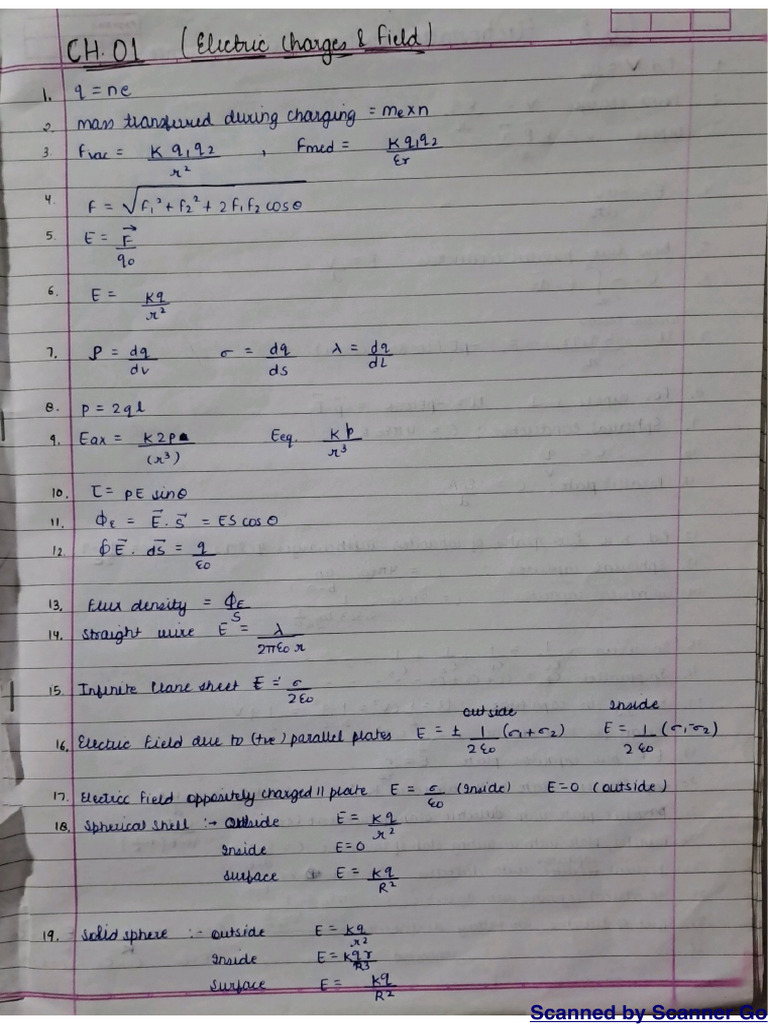 CH. 01 (Electric Charges & Field)
1. q = ne
2. mass transferred during charging = me × n
3. Fvac = K q1 q2 / r² , Fmed = K q1 q2 / εr
4. F = √(F1² + F2² + 2F1F2 cosθ)
5. E = F⃗ / q0
6. E = Kq / r²
7. ρ = dq / dv σ = dq / ds λ = dq / dL
8. P = 2ql
9. Eax = K2P / (r³) Eeq. Kp / r³
10. τ = PE sinθ
11. ϕE = E⃗ . S⃗ = ES cosθ
12. ∮E⃗ . ds⃗ = q / ε0
13, Flux density = ϕE / S
14. Straight wire E = λ / 2πε0 r
15. Infinite Plane sheet E = σ / 2ε0
16, Electric Field due to (+ve) parallel plates outside E = ± 1 / 2ε0 (σ1 + σ2) Inside E = 1 / 2ε0 (σ1-σ2)
17. Electric Field oppositely charged || plate E = σ / ε0 (Inside) E=0 (outside)
18. Spherical shell :→ outside E = Kq / r²
Inside E=0
surface E = Kq / R²
19. Solid sphere :- outside E = Kq / r²
Inside E = Kqr / R³
surface E = Kq / R²
Scanned by Scanner Go